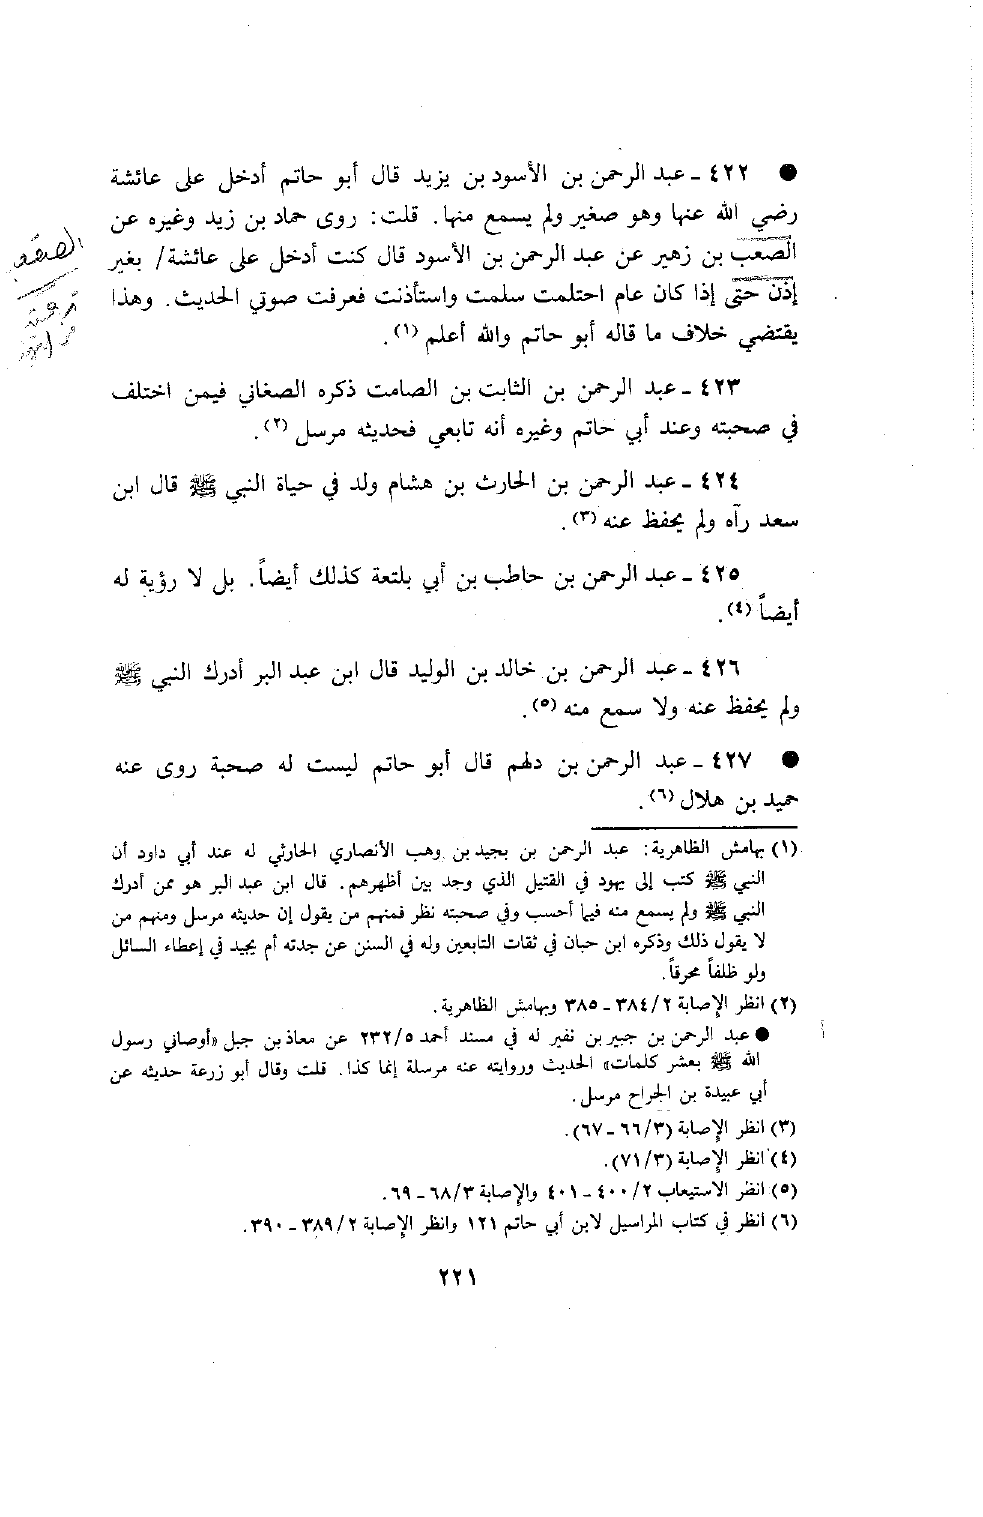 ● ٤٢٢ ـ عبد الرحمن بن الأسود بن يزيد قال أبو حاتم أدخل على عائشة
رضي الله عنها وهو صغير ولم يسمع منها. قلت: روى حماد بن زيد وغيره عن
الصعب بن زهير عن عبد الرحمن بن الأسود قال كنت أدخل على عائشة/ بغير
إذن حتى إذا كان عام احتلمت سلمت واستأذنت فعرفت صوتي الحديث. وهذا
يقتضي خلاف ما قاله أبو حاتم والله أعلم (١).
٤٢٣ ـ عبد الرحمن بن الثابت بن الصامت ذكره الصغاني فيمن اختلف
في صحبته وعند أبي حاتم وغيره أنه تابعي فحديثه مرسل (٢).
٤٢٤ ـ عبد الرحمن بن الحارث بن هشام ولد في حياة النبي ﷺ قال ابن
سعد رآه ولم يحفظ عنه (٣).
٤٢٥ ـ عبد الرحمن بن حاطب بن أبي بلتعة كذلك أيضاً. بل لا رؤية له
أيضاً (٤).
٤٢٦ ـ عبد الرحمن بن خالد بن الوليد قال ابن عبد البر أدرك النبي ﷺ
ولم يحفظ عنه ولا سمع منه (٥).
● ٤٢٧ ـ عبد الرحمن بن دلهم قال أبو حاتم ليست له صحبة روى عنه
حميد بن هلال (٦).
(١) بهامش الظاهرية: عبد الرحمن بن بجيد بن وهب الأنصاري الحارثي له عند أبي داود أن
النبي ﷺ كتب إلى يهود في القتيل الذي وجد بين أظهرهم. قال ابن عبد البر هو ممن أدرك
النبي ﷺ ولم يسمع منه فيما أحسب وفي صحبته نظر فمنهم من يقول إن حديثه مرسل ومنهم من
لا يقول ذلك وذكره ابن حبان في ثقات التابعين وله في السنن عن جدته أم بجيد في إعطاء السائل
ولو ظلفاً محرقاً.
(٢) انظر الإصابة ٢/ ٣٨٤ ـ ٣٨٥ وبهامش الظاهرية.
● عبد الرحمن بن جبير بن نفير له في مسند أحمد ٢٣٢/٥ عن معاذ بن جبل «أوصاني رسول
الله ﷺ بعشر كلمات» الحديث وروايته عنه مرسلة إنما كذا. قلت وقال أبو زرعة حديثه عن
أبي عبيدة بن الجراح مرسل.
(٣) انظر الإصابة (٣/ ٦٦ ـ ٦٧).
(٤) انظر الإصابة (٣/ ٧١).
(٥) انظر الاستيعاب ٢/ ٤٠٠ ـ ٤٠١ والإصابة ٣/ ٦٨ ـ ٦٩.
(٦) انظر في كتاب المراسيل لابن أبي حاتم ١٢١ وانظر الإصابة ٢/ ٣٨٩ ـ ٣٩٠.
٢٢١